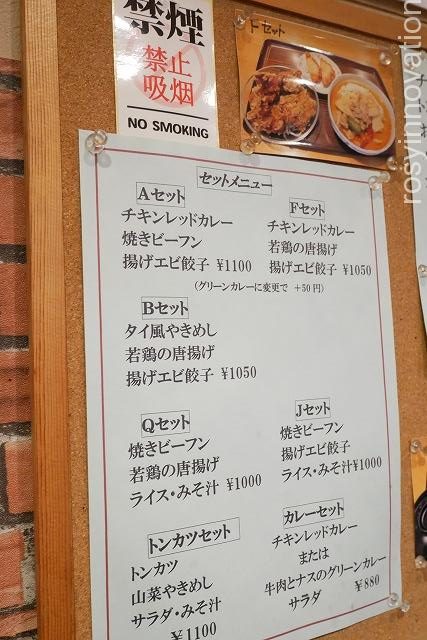 禁煙
禁止
吸烟
NO SMOKING
Fセット
rosyinnovation
セットメニュー
Aセット
チキンレッドカレー
焼きビーフン
揚げエビ餃子 ¥1100
Fセット
チキンレッドカレー
若鶏の唐揚げ
揚げエビ餃子 ¥1050
(グリーンカレーに変更で +50円)
Bセット
タイ風やきめし
若鶏の唐揚げ
揚げエビ餃子 ¥1050
Qセット
焼きビーフン
若鶏の唐揚げ
ライス・みそ汁 ¥1000
Jセット
焼きビーフン
揚げエビ餃子
ライス・みそ汁 ¥1000
トンカツセット
トンカツ
山菜やきめし
サラダ・みそ汁
¥1100
カレーセット
チキンレッドカレー
または
牛肉とナスのグリーンカレー
サラダ ¥880